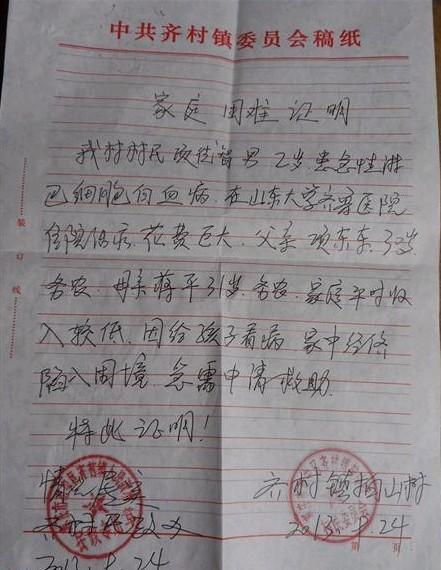 中共齐村镇委员会稿纸
家庭困难证明
我村村民项传智男2岁患急性淋
巴细胞白血病.在山东大学齐鲁医院
住院治疗.花费巨大.父亲项东东.32岁
务农.母亲蒋平31岁.务农.家庭平时收
入较低.因给孩子看病家中经济
陷入困境.急需申请救助.
特此证明!
情况属实
齐村镇民政办
2013.5.24
齐村镇
山村
2013.5.24
装订线